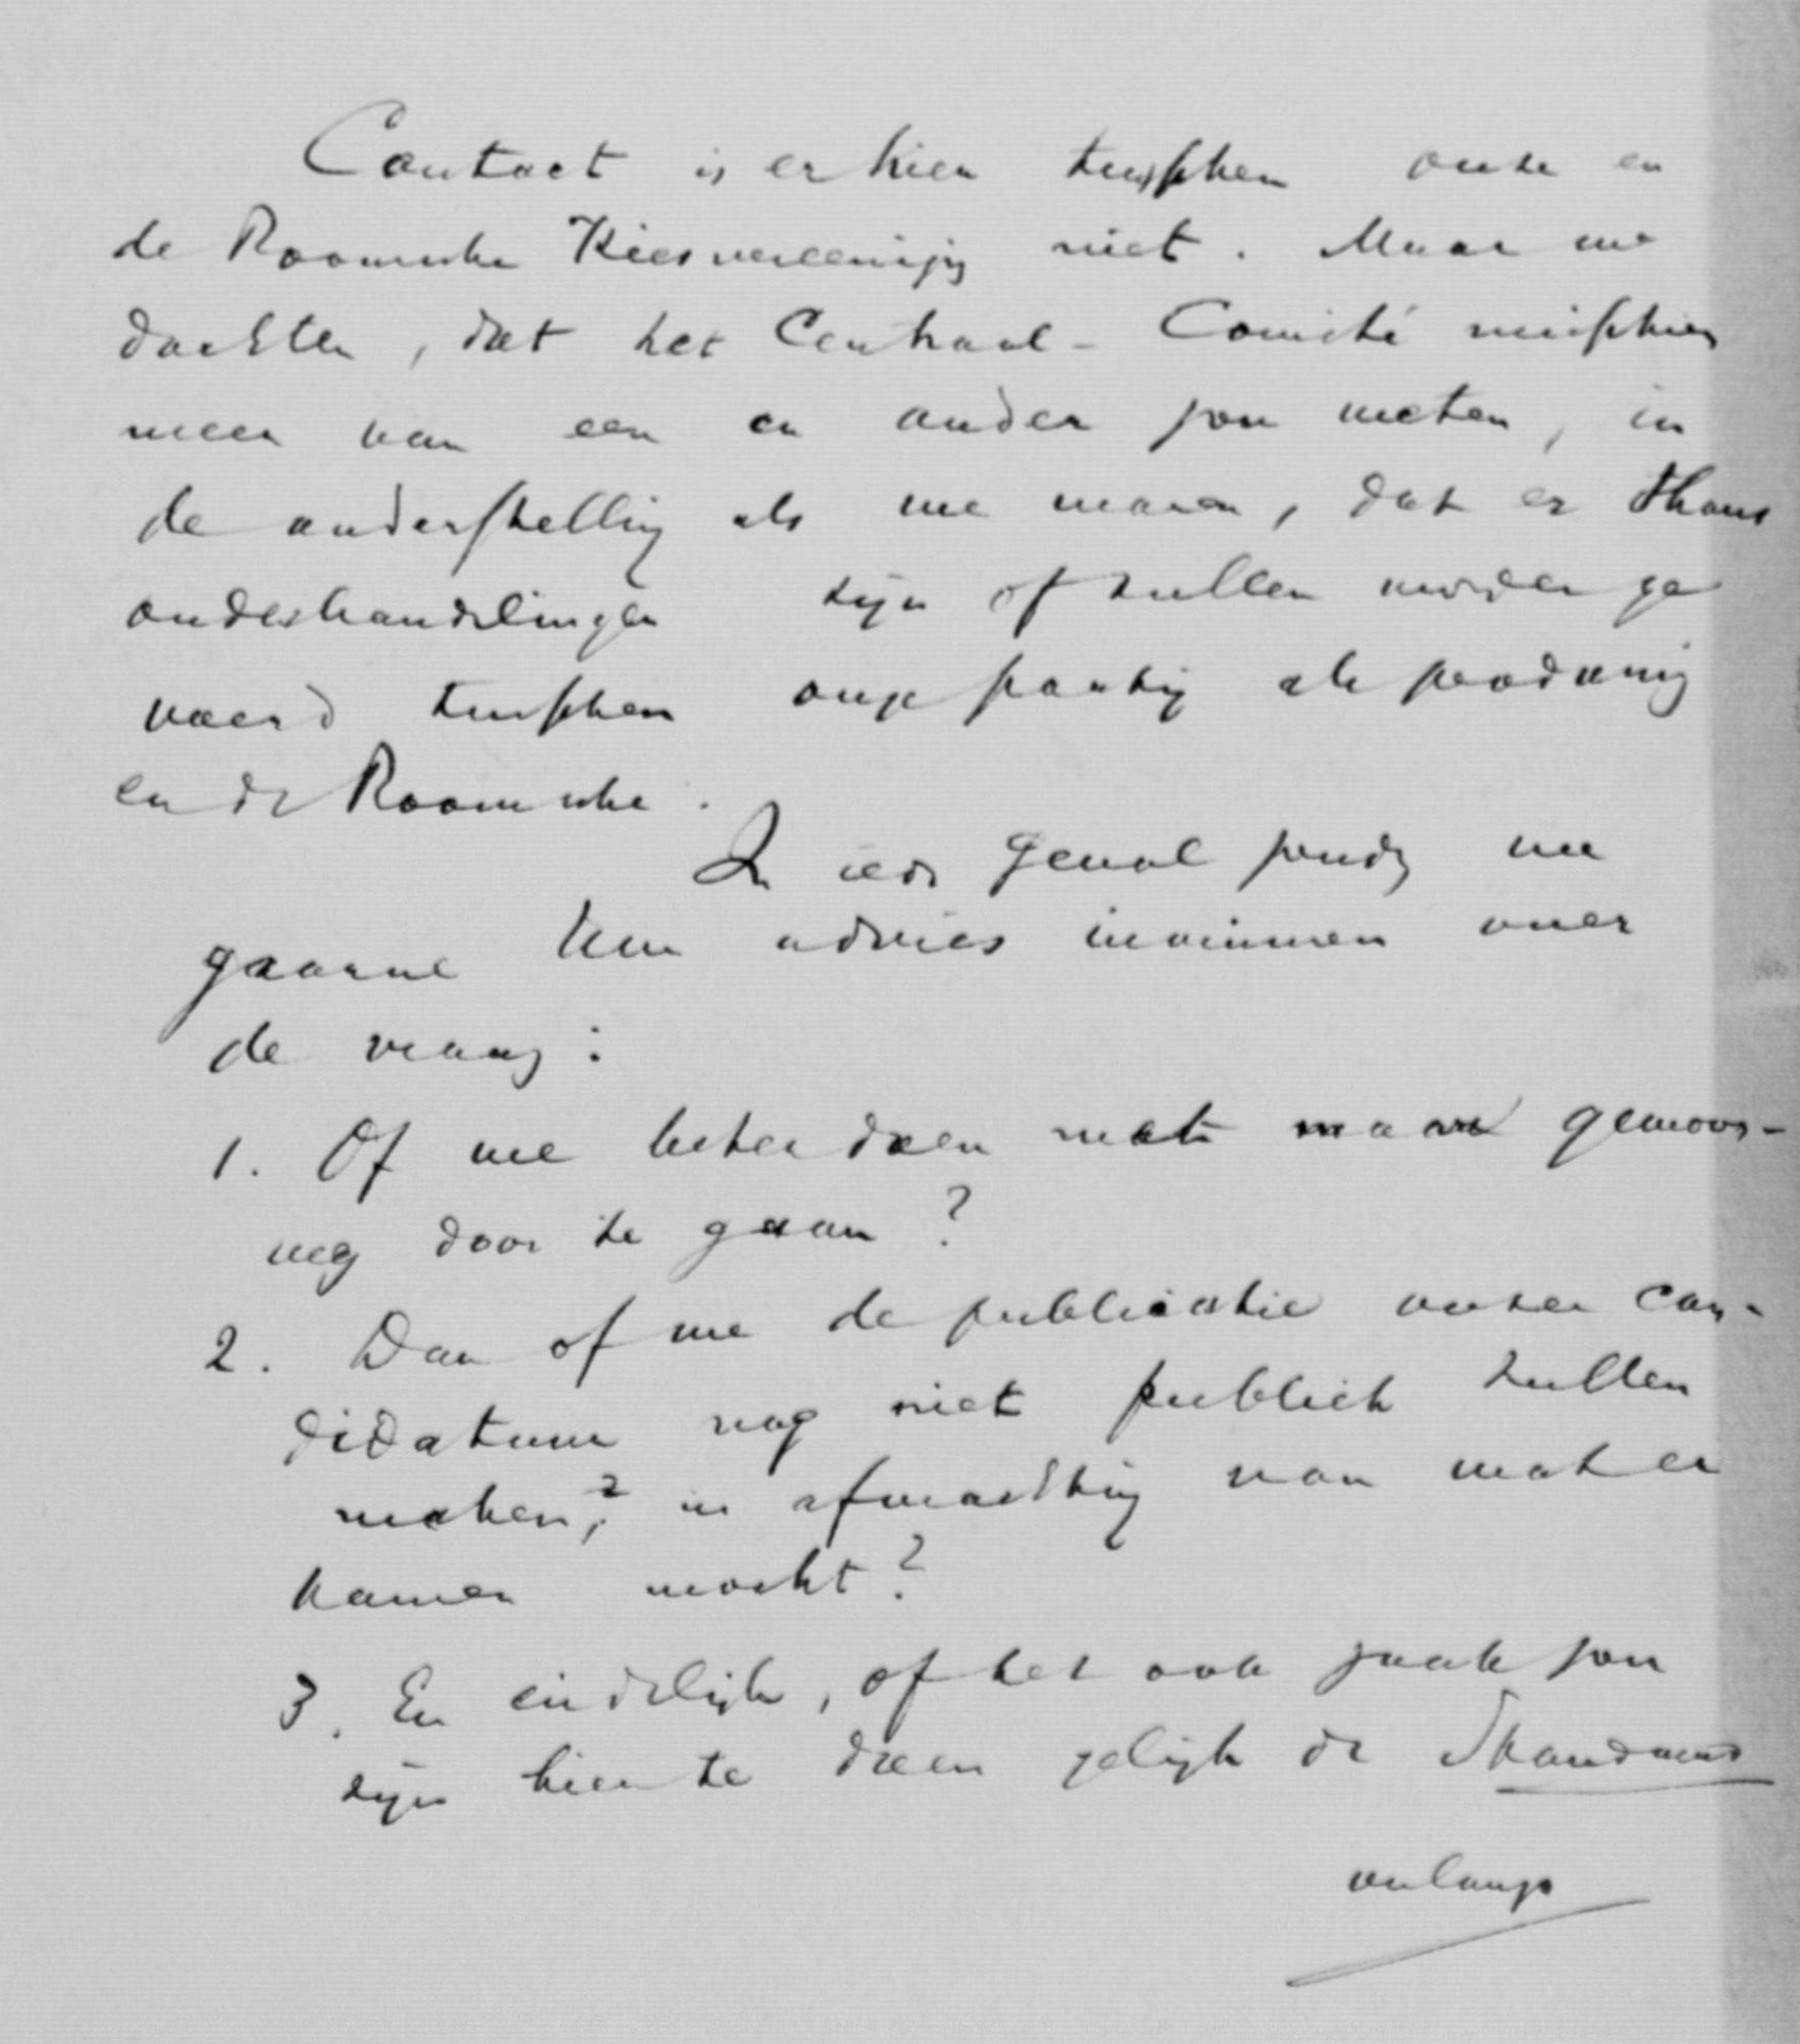 Contact is er hier tusschen onze en
de Roomsche Kiesvereenigig niet. Maar we
dachten, dat het Centraal-Comité misschien
meer van een en ander zou weten, in
de onderstelling als we waren, dat er thans
onderhandelingen zijn of zullen worden ge
voerd tusschen onze partij als zoodanig
en de Roomsche.
In ieder geval zouden we
gaarne Uw advies inwinnen over
de vraag:
1. Of we beter doen met maar gewoon-
weg door te gaan?
2. Dan of we de publicatie onzer can-
didatuur nog niet publiek zullen
maken?, in afwachting van wat er
komen mocht?
3. En eindelijk, of het ook zaak zou
zijn hier te doen gelijk de Standaard
onlangs